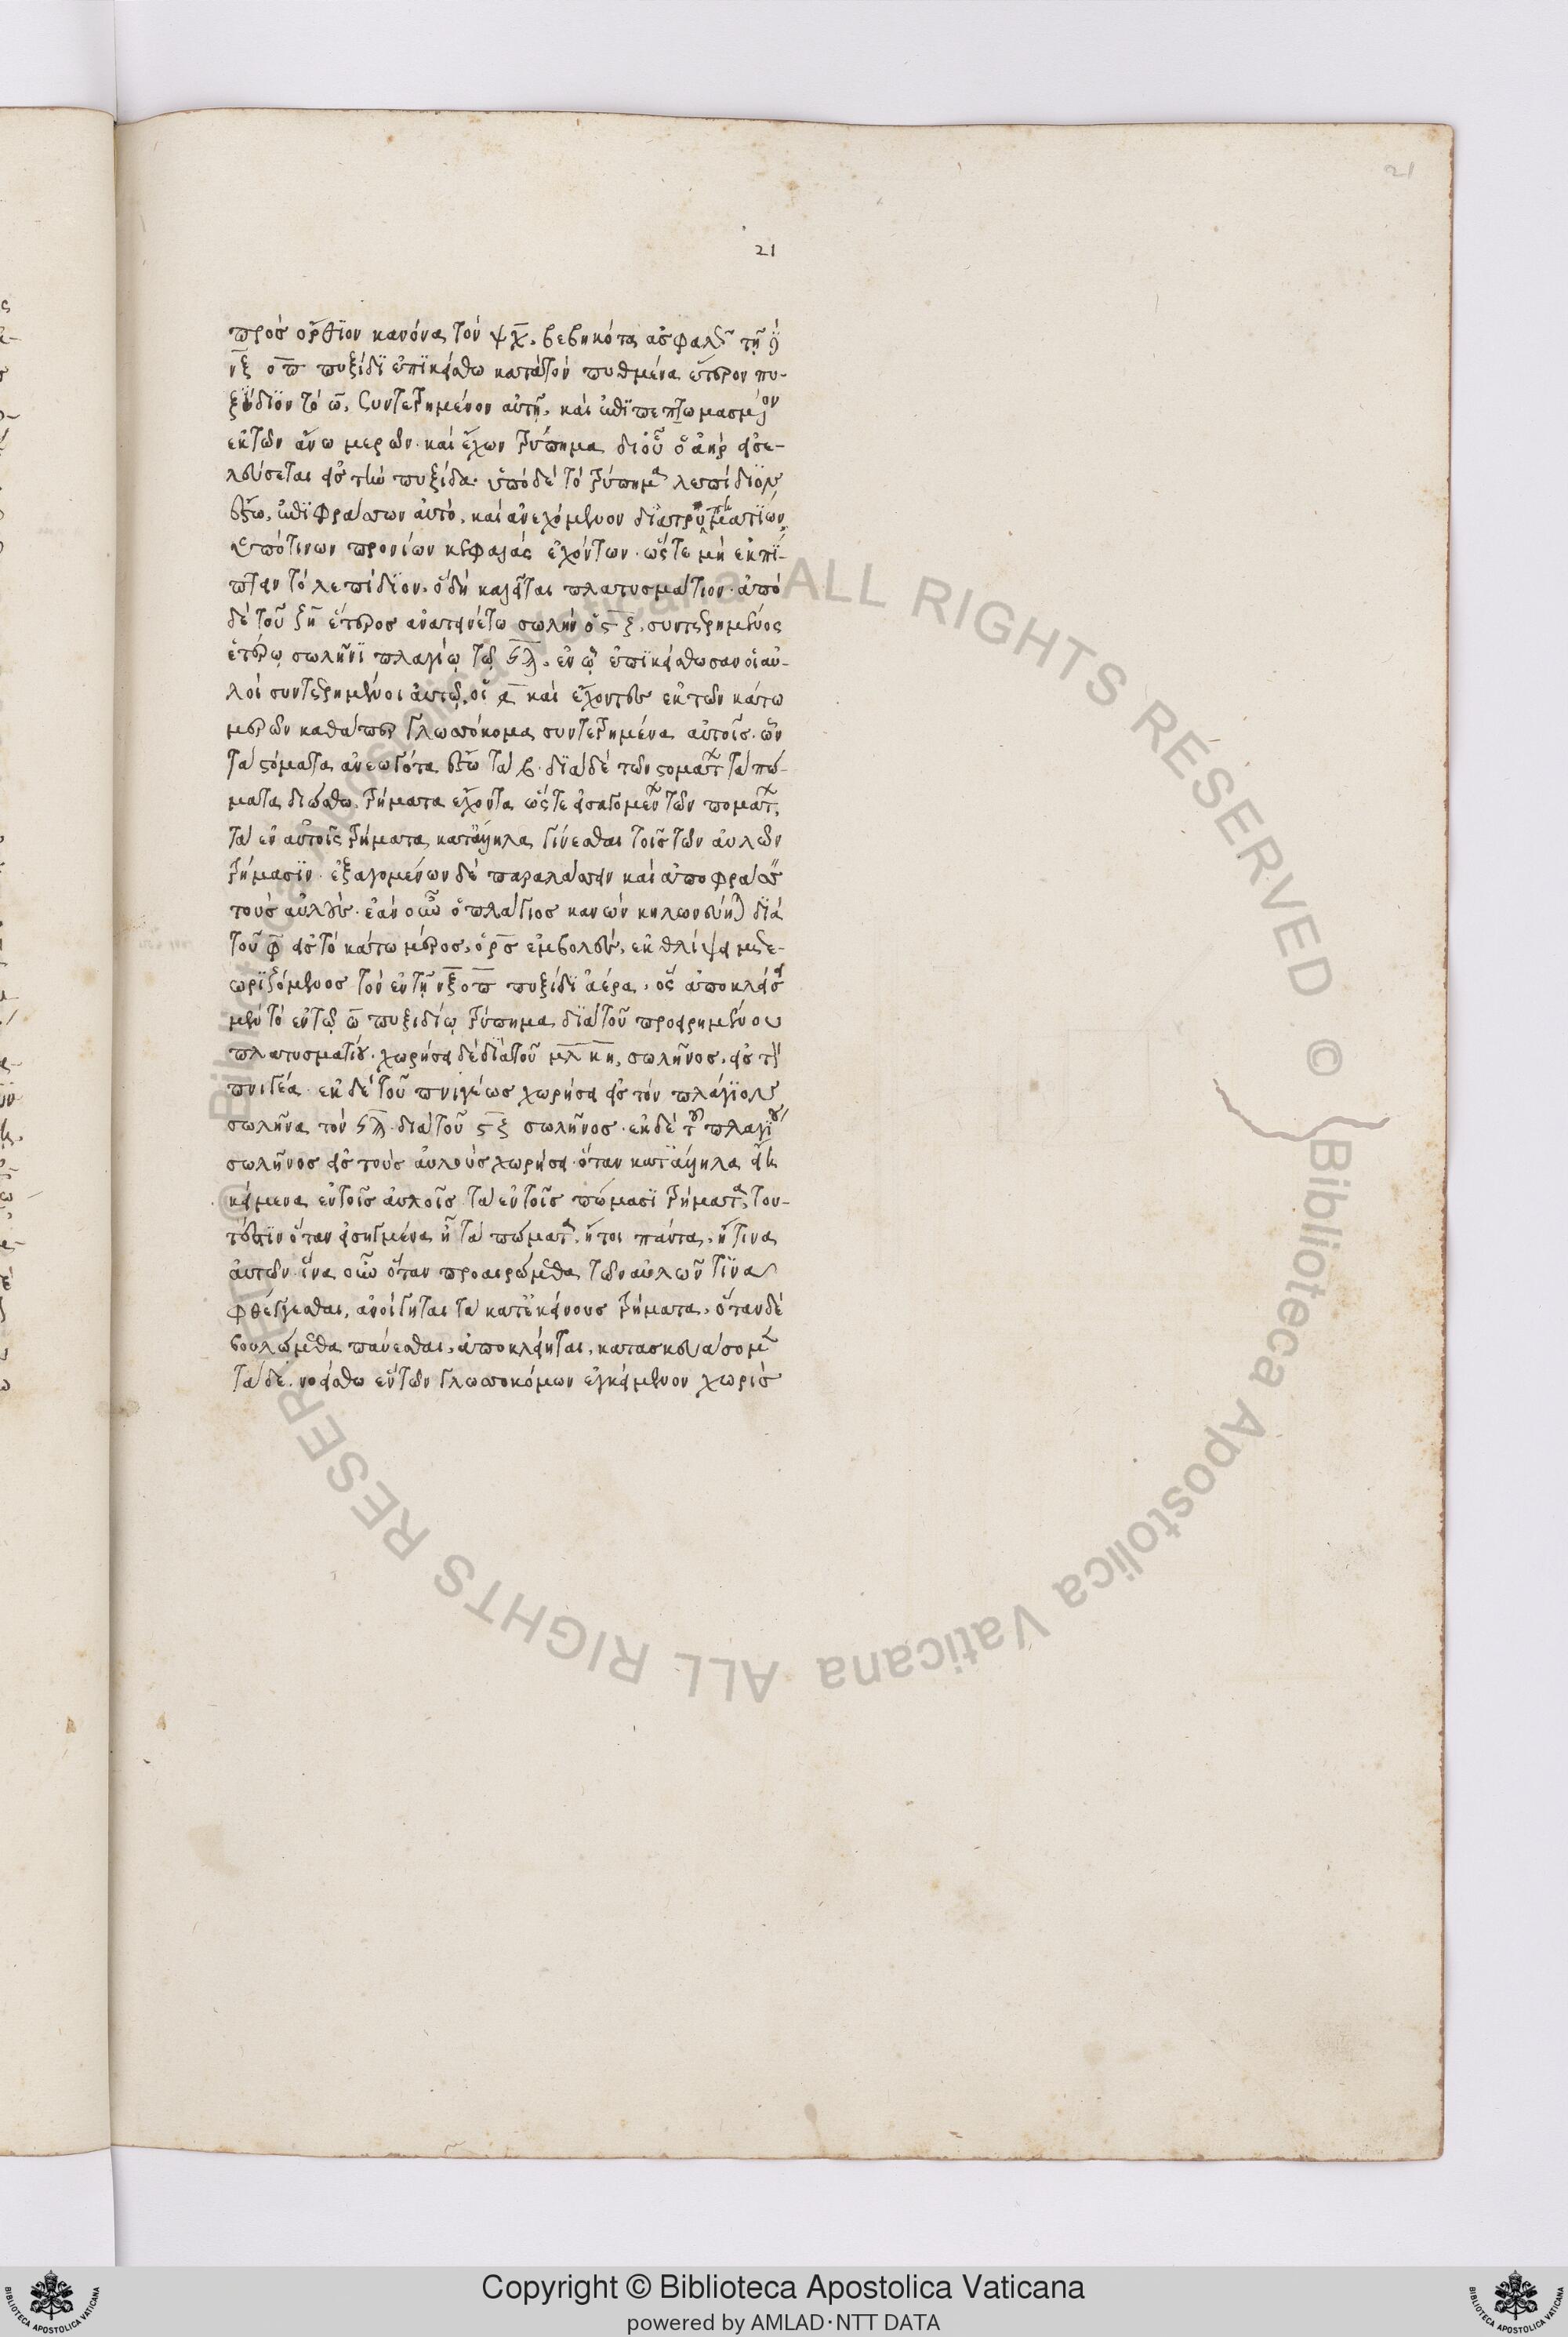 21
21
πρὸσ ὄρθϊον κανόνα τὸν ψχ. βεβηκότα ἀσφαλῶς. τῇ δὲ
νξ οπ πυξίδϊ ἐπϊκείσθω κατὰ τὸν πυθμένα ἕτερον πυ-
ξίδϊον τὸ ω, συντετρημένον αὐτῇ, καὶ ἐπϊπεπωμασμένον
ἐκ τῶν ἄνω μερῶν. καὶ ἔχων τρύπημα δι οὗ ὁ ἀὴρ εἰσε-
λεύσεται εἰσ τὴν πυξίδα. ὑπὸ δὲ τὸ τρύπημα λεπίδϊον
ἔστω, ἐπϊφράσσων αὐτό, καὶ ἀνεχόμενον διὰ τρυπηματίων
ὑπό τινων περονίων κεφαλὰς ἐχόντων. ὥστε μὴ ἐκπί-
πτειν τὸ λεπίδϊον. ὃ δὴ καλεῖται πλατυσμάτιον. ἀπὸ
δὲ τοῦ ξη ἕτεροσ ἀνατεινέτω σωλὴν ὁ ϛ ξ, συντετρημένος
ἑτέρῳ σωλῆνϊ πλαγίῳ τῷ ϛλ. ἐν ᾧ ἐπϊκείσθωσαν οἱ αὐ-
λοὶ συντετρημένοι αὐτῷ, οἱ α καὶ ἔχοντεσ ἐκ τῶν κάτω
μερῶν καθάπερ γλωσσόκομα συντετρημένα αὐτοῖσ. ὧν
τὰ στόματα ἀνεωγότα ἔστω τὰ β. διὰ δὲ τῶν στομάτων τὰ πώ-
ματα διώσθω τρήματα ἔχοντα ὥστε εἰσαγομένων τῶν πομάτων,
τὰ ἐν αὐτοῖς τρήματα κατάλληλα γίνεσθαι τοῖσ τῶν αὐλῶν
τρήμασϊν. ἐξαγομένων δὲ παραλάσσειν καὶ ἀποφράσσειν
τοὺσ αὐλούσ. ἐὰν οὖν ὁ πλάγιοσ κανὼν κηλωνεύηται διὰ
τοῦ φ εἰσ τὸ κάτω μέροσ, ὁ ρσ ἐμβολεύσ, ἐκθλίψει μετε-
ωρϊζόμενοσ τὸν ἐν τῇ νξοπ πυξίδϊ ἀέρα. ὃς ἀποκλείσει
μὲν τὸ ἐν τῷ ω πυξιδίῳ τρύπημα διὰ τοῦ προειρημένου
πλατυσματίου. χωρήσει δὲ διὰ τοῦ μλ κη, σωλῆνοσ. εἰσ τὸν
πνιγέα. ἐκ δὲ τοῦ πνιγέωσ χωρήσει εἰσ τὸν πλάγϊον
σωλῆνα τὸν ϛλ. διὰ τοῦ ϛ ξ σωλῆνοσ. ἐκ δὲ τοῦ πλαγίου
σωλῆνοσ εἰσ τοὺσ αὐλοὺσ χωρήσει. ὅταν κατάλληλα ᾖ
κείμενα ἐν τοῖσ αὐλοῖσ τὰ ἐν τοῖσ πώμασϊ τρήματα, του-
τέστϊν ὅταν εἰσηγμένα ᾖ τὰ πώματα, ἤτοι πάντα, ἤ τινα
αὐτῶν. ἵνα οὖν ὅταν προαιρώμεθα τῶν αὐλῶν τϊνα
φθέγγεσθαι, ἀνοίγηται τὰ κατ ἐκείνουσ τρήματα. ὅταν δὲ
βουλώμεθα παύεσθαι, ἀποκλείηται, κατασκευάσομεν
τάδε. νοείσθω ἓν τῶν γλωσσοκόμων ἐγκείμενον χωρὶσ